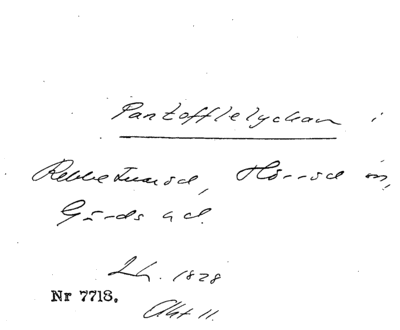 Pantofflelyckan i
Rebbetuaröd, Hörröd sn,
Gärds hd.
Lh. 1828
Nr 7718.
Akt 11.